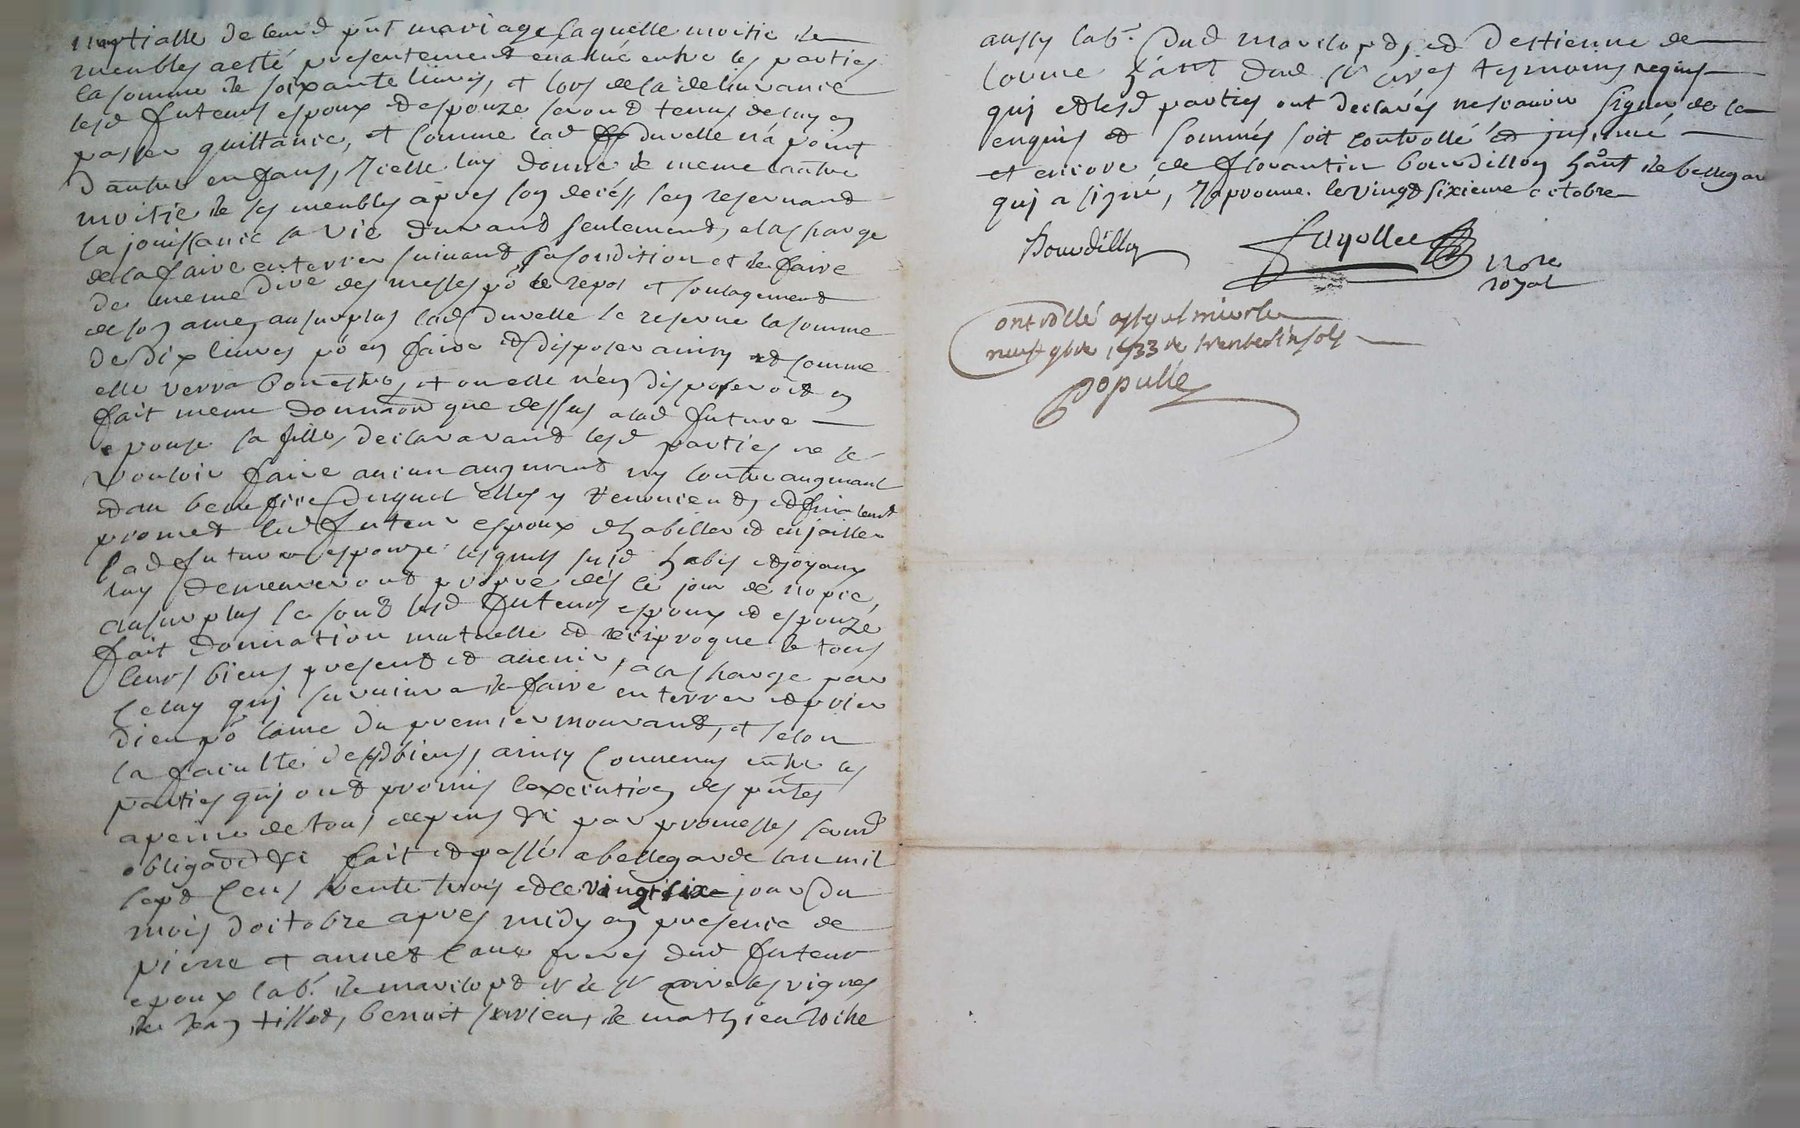 nuptialle de leurd pnt mariage laquelle moitie de
meubles a esté presentement évalué entre les parties
la somme de soixante livres, et lors de la delivrance
lesd futeurs espoux et espouze seront tenus de luy en
passer quittance, et comme lad duvelle n'a point
d'autre enfans, icelle luy donne de meme l'autre
moitie de ses meubles apres son decés, s'en reservand
la jouissance sa vie durand seulement, a la charge
de la faire enterrer suivant sa condition et de faire
de meme dire des messes po le repos et soulagement
de son ame, au surplus lad duvelle se reserve la somme
de dix livres po en faire et disposer ainsy et comme
elle verra bon estre, et ou elle n'en disposeroit en
fait meme donnaon que dessus a lad future
epouze sa fille, declarand lesd parties ne se
vouloir faire aucun augment ny contre augmant
et au benefice duquel elles y renoncent, et
promet led futeur espoux d'habiller et enjoailler
lad future espouze lesquels susd habis et joyaux
luy demeureront propre dés le jour de nopce,
au surplus se sont lesd futeurs espoux et espouze
fait donnation mutuelle et reciproque de tous
leurs biens present et avenir, a la charge par
celuy qui survivra de faire enterrer et prier
dieu po l'ame du premier mourand, et selon
la faculté desd biens, ainsy convenus entre les
parties qui ont promis l'execution des pntes
a peine de tous depens &c par promesses serm
obligaon &c fait et passé a bellegarde l'an mil
sept cens trente trois et le vingt six jour du
mois d'octobre apres midy en presence de
pierre et annet freres dud futeur
epoux lab. de
de Jean tillet, benoit de mathieu roche
aussy lab. dud et d'estienne de
tesmoins requis
qui et lesd parties ont declarés ne scavoir signer de ce
enquis et sommés soit controllé et insinué
et encore de florantin bourdillon hant de bellegarde
qui a signé, approuve. le vingt sixieme octobre
Bourdillon fayolle nore
royal
controllé
neuf 9bre 1733 sols
populle